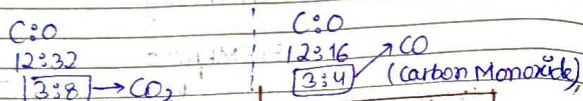 C:O
12:32
3:8 → CO₂
C:O
12:16
3:4 → CO
(Carbon Monoxide)